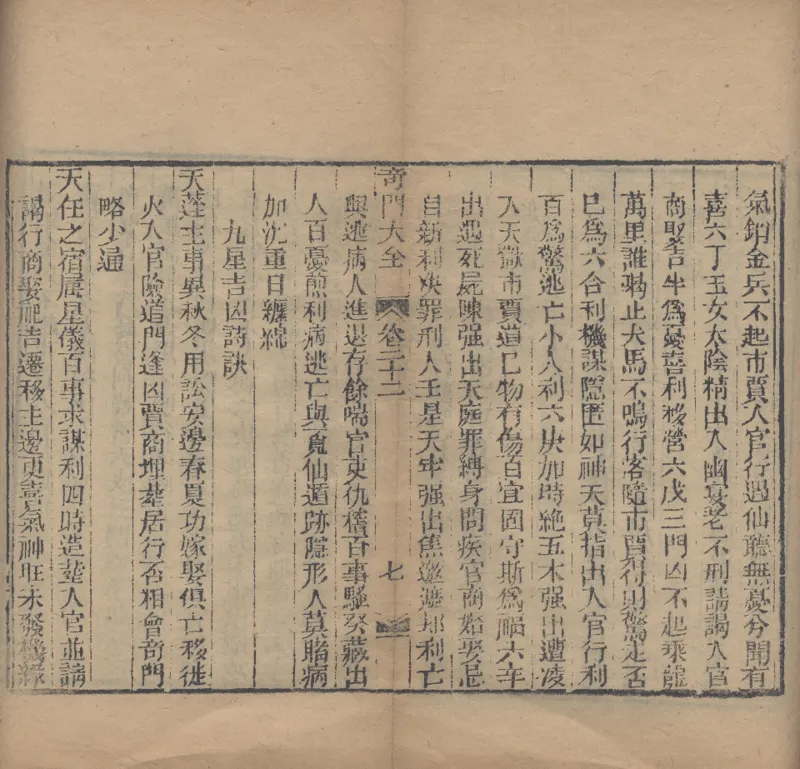 氣銷金兵不起市賈入官行過仙聽無憂兮開有
喜六丁玉女太陰精出入幽冥老不刑請謁入官
商娶吉牛爲憂喜利移營六戊三門凶不起乘龍
萬里誰謁止犬馬不鳴行客隨市賈得則驚走否
巳爲六合利機謀隱匿如神天莫指出入官行利
百爲驚逃亡小人利六庚加時絶五木强出遭凌
入天獄市賈道巳物有傷百宜固守斯爲福六辛
出遇死屍陳强出天庭罪縛身問疾官商婚娶忌
自新利決罪刑人壬星天牢强出焦邅邅邦利亡
奇門大全 卷二十二 七
與逃病人進退存餘喘官吏仇稽百事騷癸藏出
人百憂煎利病逃亡與覓仙遁跡隱形人莫睹病
加沈重日纏綿
九星吉凶詩訣
天蓬主事異秋冬用訟安邊春夏功嫁娶俱亡移徙
火入官險道門逢凶賈商埋葬居行否相會奇門
略少通
天任之宿屬星儀百事求謀利四時造葬入官並請
謁行商娶寵吉遷移主邊更喜氣神旺未發